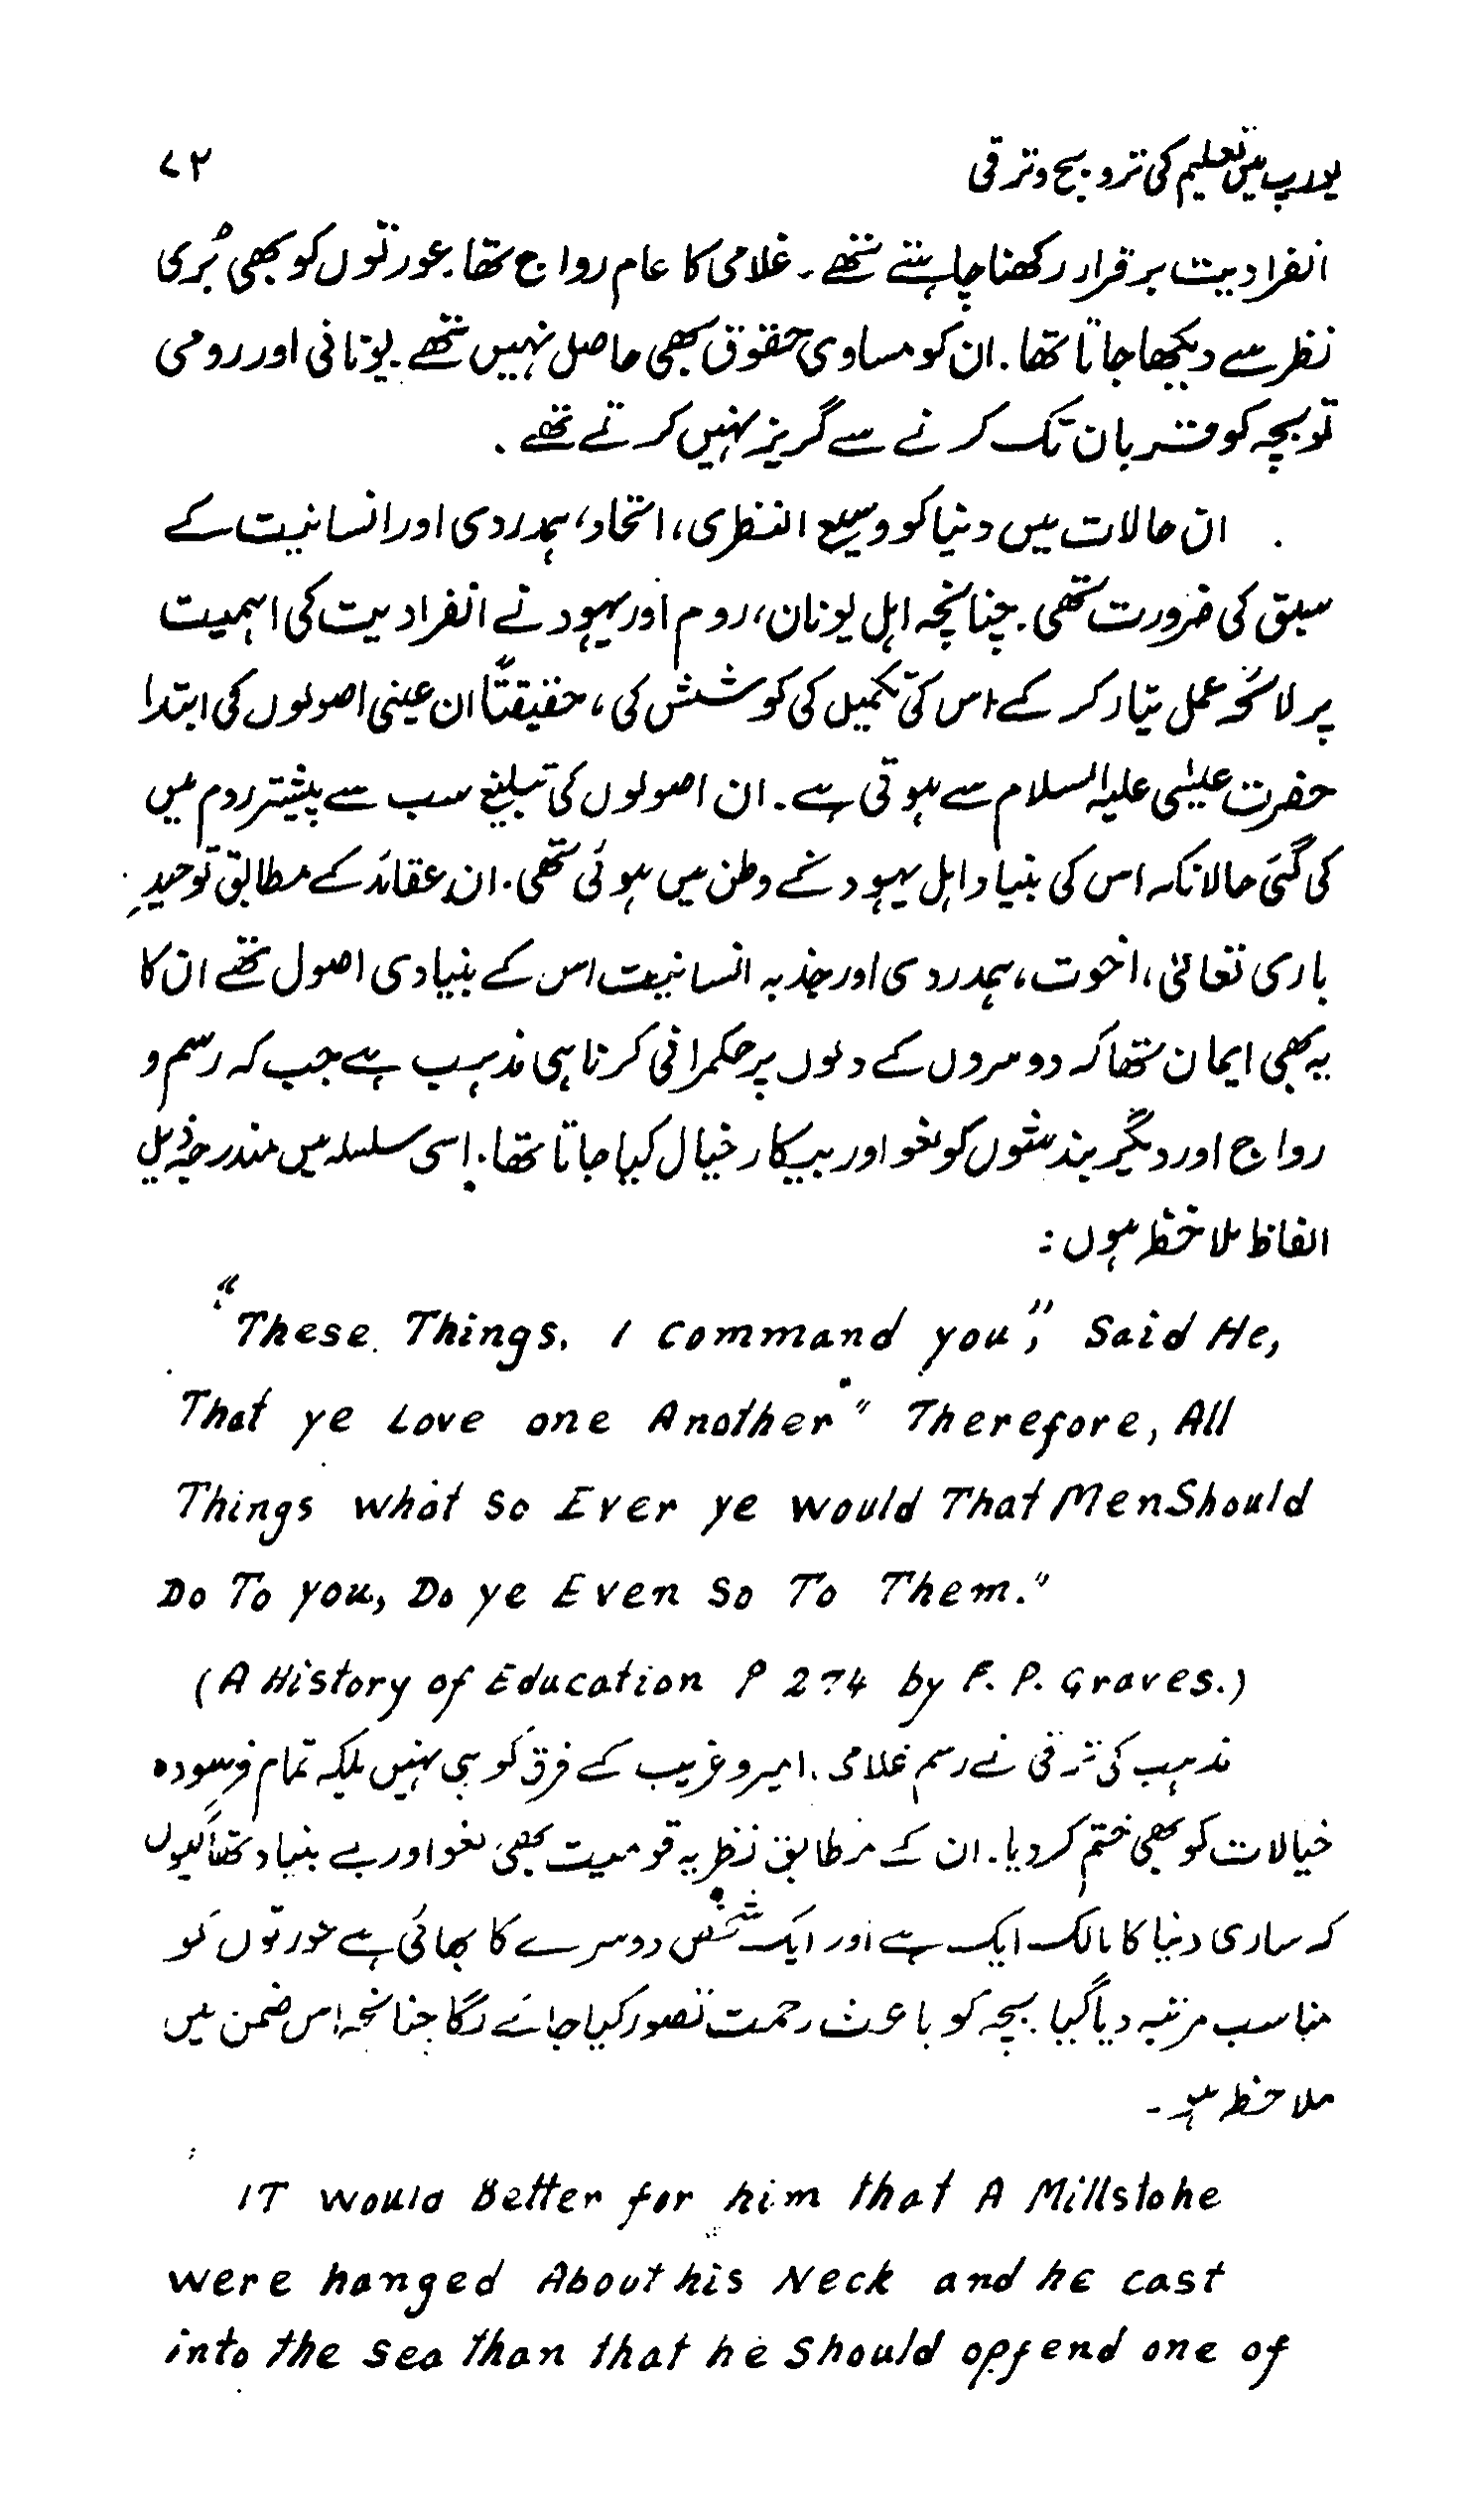 یورپ میں تعلیم کی ترویج و ترقی ۷۲
انفرادیت برقرار رکھنا چاہتے تھے۔ غلامی کا عام رواج تھا۔ عورتوں کو بھی بُری
نظر سے دیکھا جاتا تھا۔ ان کو مساوی حقوق بھی حاصل نہیں تھے۔ یونانی اور رومی
تو بچہ کو قربان تک کرنے سے گریز نہیں کرتے تھے۔
ان حالات میں دنیا کو وسیع النظری، اتحاد، ہمدردی اور انسانیت کے
سبق کی ضرورت تھی۔ چنانچہ اہل یونان، روم اور یہود نے انفرادیت کی اہمیت
پر لائحہ عمل تیار کر کے اس کی تکمیل کی کوشش کی، حقیقتاً ان عینی اصولوں کی ابتدا
حضرت عیسٰی علیہ السلام سے ہوتی ہے۔ ان اصولوں کی تبلیغ سب سے پیشتر روم میں
کی گئی حالانکہ اس کی بنیاد اہل یہود کے وطن میں ہوئی تھی۔ ان عقائد کے مطابق توحیدِ
باری تعالیٰ، اخوت، ہمدردی اور جذبہ انسانیت اس کے بنیادی اصول تھے ان کا
یہ بھی ایمان تھا کہ دوسروں کے دلوں پر حکمرانی کرنا ہی مذہب ہے جب کہ رسم و
رواج اور دیگر بندشوں کو لغو اور بیکار خیال کیا جاتا تھا۔ اسی سلسلہ میں مندرجہ ذیل
الفاظ ملاحظہ ہوں :
"These Things. I command you", Said He,
That ye Love one Another" Therefore, All
Things what so Ever ye would That Men Should
Do To you, Do ye Even So To Them."
(A History of Education P 274 by F. P. Graves.)
مذہب کی ترقی نے رسم غلامی، امیر و غریب کے فرق کو ہی نہیں بلکہ تمام فرسودہ
خیالات کو بھی ختم کر دیا۔ ان کے مطابق نظریہ قومیت بھی لغو اور بے بنیاد تھا کیوں
کہ ساری دنیا کا مالک ایک ہے اور ایک شخص دوسرے کا بھائی ہے عورتوں کو
مناسب مرتبہ دیا گیا۔ بچہ کو باعث رحمت تصور کیا جانے لگا چنانچہ اس ضمن میں
ملاحظہ ہو۔
IT would Better for him that A Millstohe
were hanged About his Neck and he cast
into the sea than that he should opfend one of